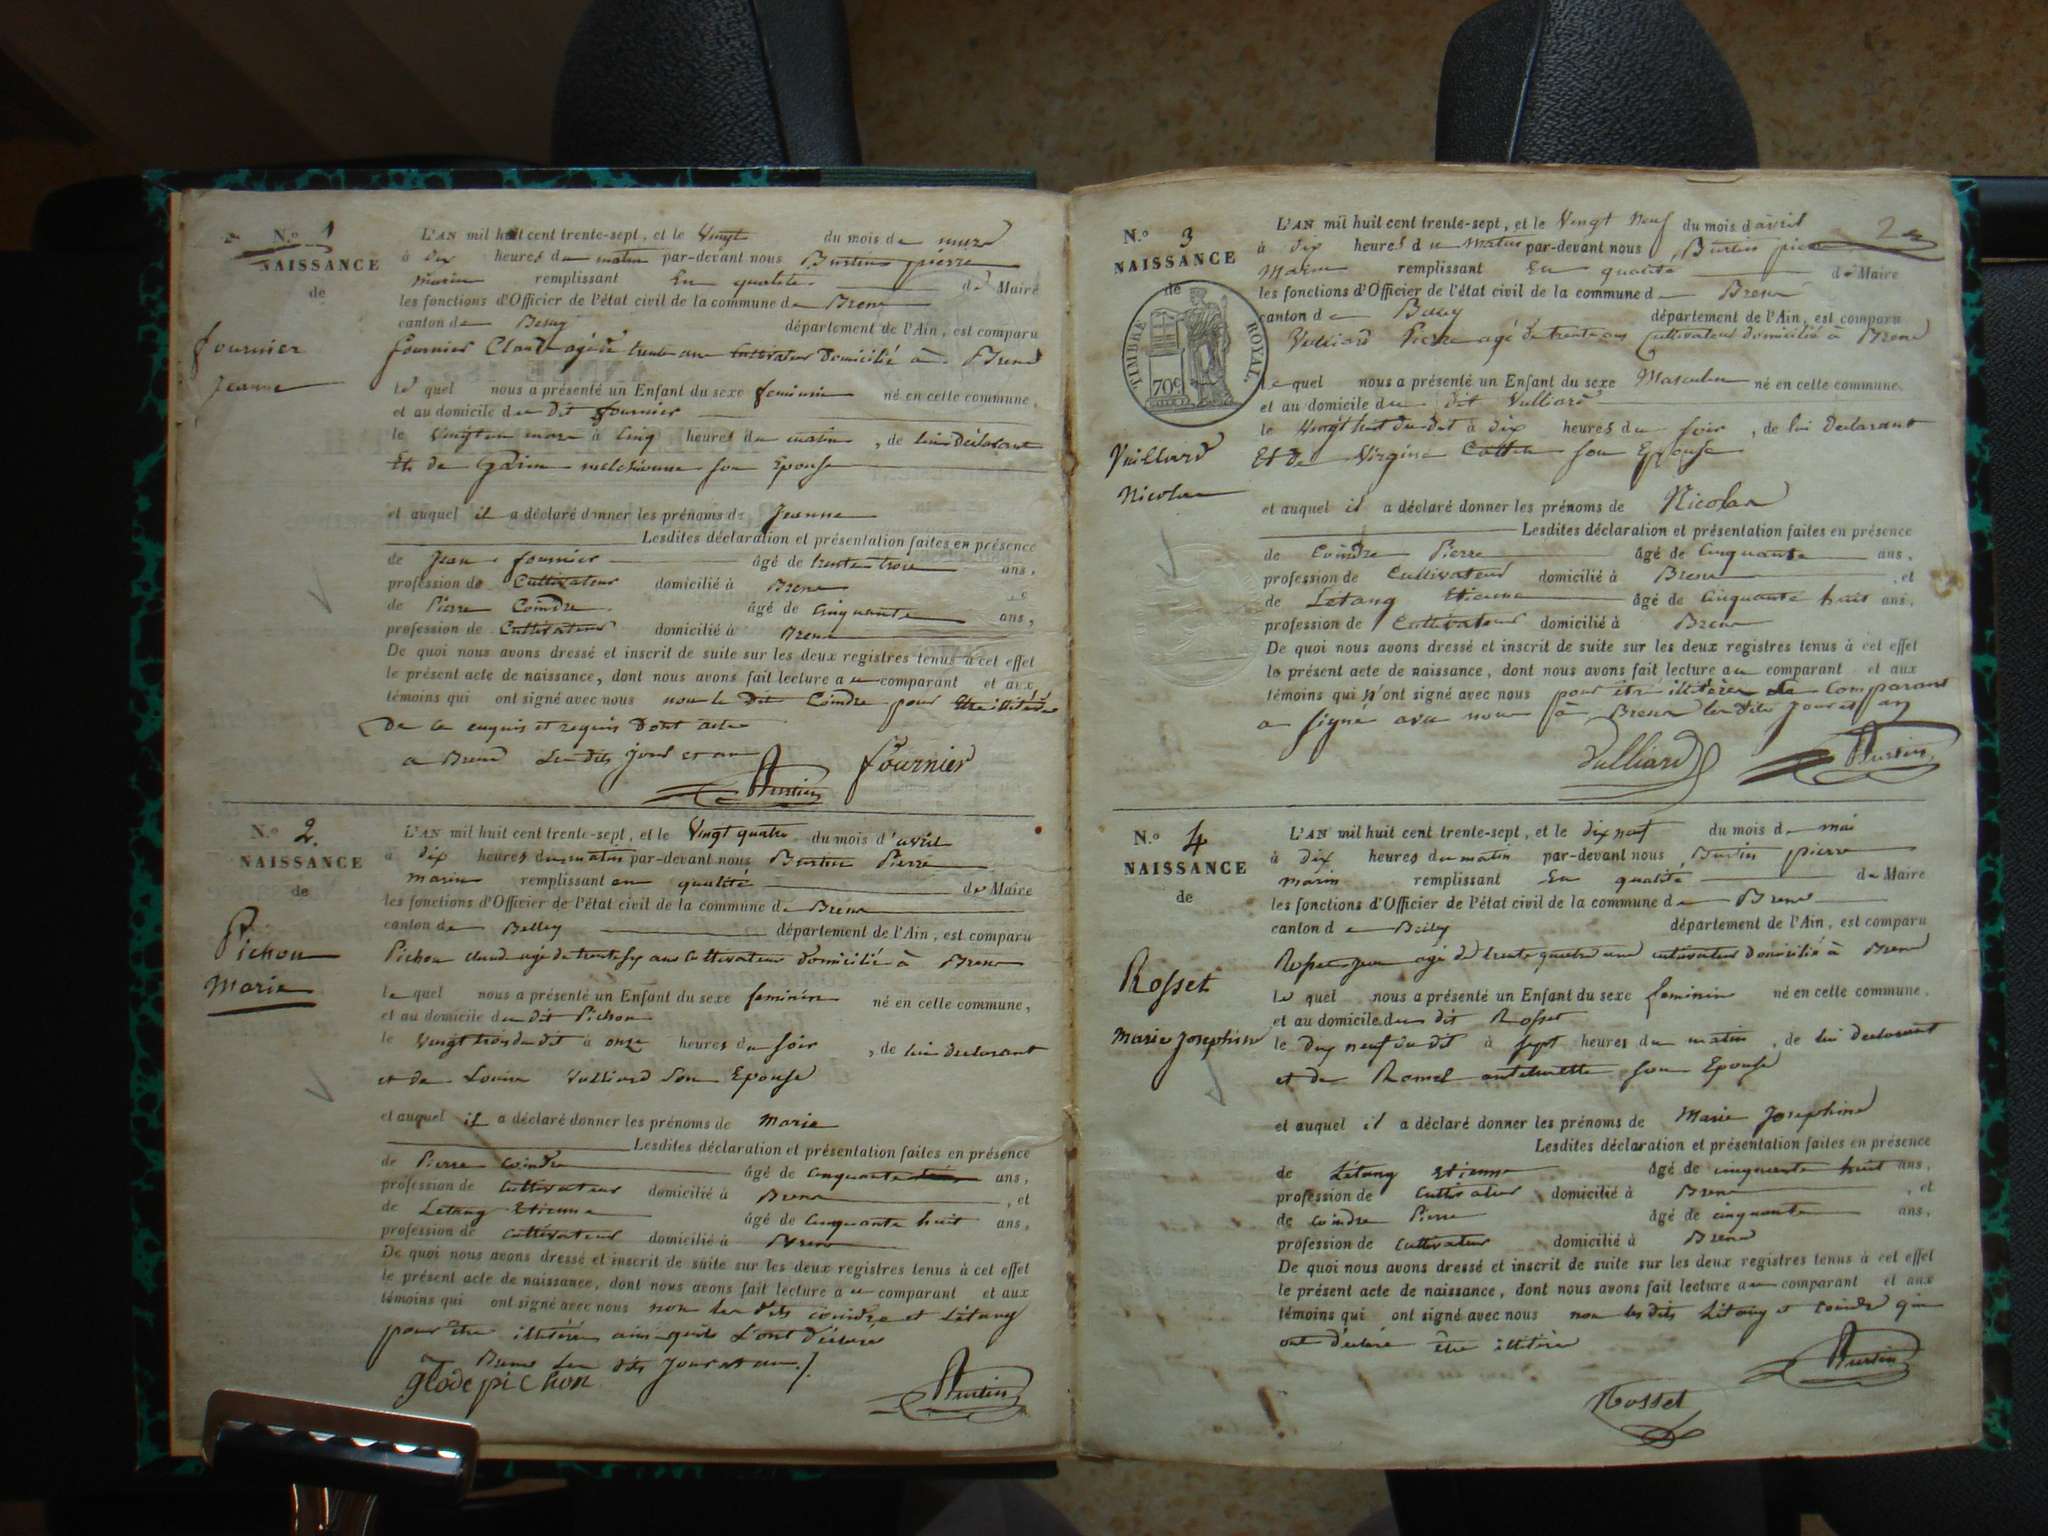 N.o 1
NAISSANCE
de
fournier
Jeanne
L'AN mil huit cent trente-sept, et le Vingt du mois de mars
à dix heures du matin par-devant nous Burtin pierre
marin remplissant En qualité de Maire
les fonctions d'Officier de l'état civil de la commune de Brens
canton de Belley département de l'Ain, est comparu
fournier Claude agé de trente ans Cultivateur Domicilié à Brens
le quel nous a présenté un Enfant du sexe feminin né en cette commune,
et au domicile du dit fournier
le mars à Cinq heures du matin, de lui Déclarant
Et de melchionne son Epouse
et auquel il a déclaré donner les prénoms de Jeanne
Lesdites déclaration et présentation faites en présence
de Jean fournier âgé de trente trois ans,
profession de Cultivateur domicilié à Brens
de Pierre Coindre âgé de Cinquante ans,
profession de Cultivateur domicilié à Brens
De quoi nous avons dressé et inscrit de suite sur les deux registres tenus à cet effet
le présent acte de naissance, dont nous avons fait lecture au comparant et aux
témoins qui ont signé avec nous non le Dit Coindre pour Etre illitéré
De ce enquis et requis Dont acte
a Brens Les dits jour et an
Burtin fournier
N.o 2.
NAISSANCE
de
Pichon
Marie
L'AN mil huit cent trente-sept, et le Vingt quatre du mois d'avril
à dix heures du matin par-devant nous Burtin Pierre
marin remplissant en qualité de Maire
les fonctions d'Officier de l'état civil de la commune de Brens
canton de Belley département de l'Ain, est comparu
Pichon claude agé de trente six ans Cultivateur domicilié à Brens
le quel nous a présenté un Enfant du sexe feminin né en cette commune,
et au domicile du dit Pichon
le Vingt trois du dit à onze heures du soir, de lui declarant
et de Louise Vulliard Son Epouse
et auquel il a déclaré donner les prénoms de Marie
Lesdites déclaration et présentation faites en présence
de Pierre coindre âgé de cinquante ans,
profession de Cultivateur domicilié à Brens, et
de Letang Etienne âgé de Cinquante huit ans,
profession de cultivateur domicilié à Brens
De quoi nous avons dressé et inscrit de suite sur les deux registres tenus à cet effet
le présent acte de naissance, dont nous avons fait lecture au comparant et aux
témoins qui ont signé avec nous non les dits coindre et Létang
pour être illitérés ainsi qu'ils L'ont déclaré
a Brens Les dits jour et an ./.
glode pichon Burtin
2
N.o 3
NAISSANCE
de
TIMBRE ROYAL.
70c
Vuilliard
Nicolas
L'AN mil huit cent trente-sept, et le Vingt Neuf du mois d'avril
à dix heures du Matin par-devant nous Burtin pierre
Marin remplissant En qualité de Maire
les fonctions d'Officier de l'état civil de la commune de Brens
canton de Belley département de l'Ain, est comparu
Vulliard Pierre agé de trente ans Cultivateur domicilié à Brens
le quel nous a présenté un Enfant du sexe Masculin né en cette commune,
et au domicile du dit Vulliard
le Vingt huit du dit à dix heures du soir, de lui Declarant
Et de Virginie son Epouse
et auquel il a déclaré donner les prénoms de Nicolas
Lesdites déclaration et présentation faites en présence
de Coindre Pierre âgé de Cinquante ans,
profession de Cultivateur domicilié à Brens, et
de Létang Etienne âgé de Cinquante huit ans,
profession de Cultivateur domicilié à Brens
De quoi nous avons dressé et inscrit de suite sur les deux registres tenus à cet effet
le présent acte de naissance, dont nous avons fait lecture au comparant et aux
témoins qui n'ont signé avec nous pour être illitérés Le Comparant
a signé avec nous à Brens les dits jour et an
Vulliard Burtin
N.o 4
NAISSANCE
de
Rosset
Marie Josephine
L'AN mil huit cent trente-sept, et le dix neuf du mois de mai
à dix heures du matin par-devant nous Burtin pierre
marin remplissant En qualité de Maire
les fonctions d'Officier de l'état civil de la commune de Brens
canton de Belley département de l'Ain, est comparu
agé de trente quatre ans cultivateur domicilié à Brens
le quel nous a présenté un Enfant du sexe feminin né en cette commune,
et au domicile du dit Rosset
le Dix neuf du dit à sept heures du matin, de lui declarant
et de son Epouse
et auquel il a déclaré donner les prénoms de Marie Josephine
Lesdites déclaration et présentation faites en présence
de Létang Etienne âgé de cinquante huit ans,
profession de Cultivateur domicilié à Brens, et
de coindre Pierre âgé de cinquante ans,
profession de Cultivateur domicilié à Brens
De quoi nous avons dressé et inscrit de suite sur les deux registres tenus à cet effet
le présent acte de naissance, dont nous avons fait lecture au comparant et aux
témoins qui ont signé avec nous non les dits Létang et coindre qui
ont déclaré être illitéré
Burtin
Rosset